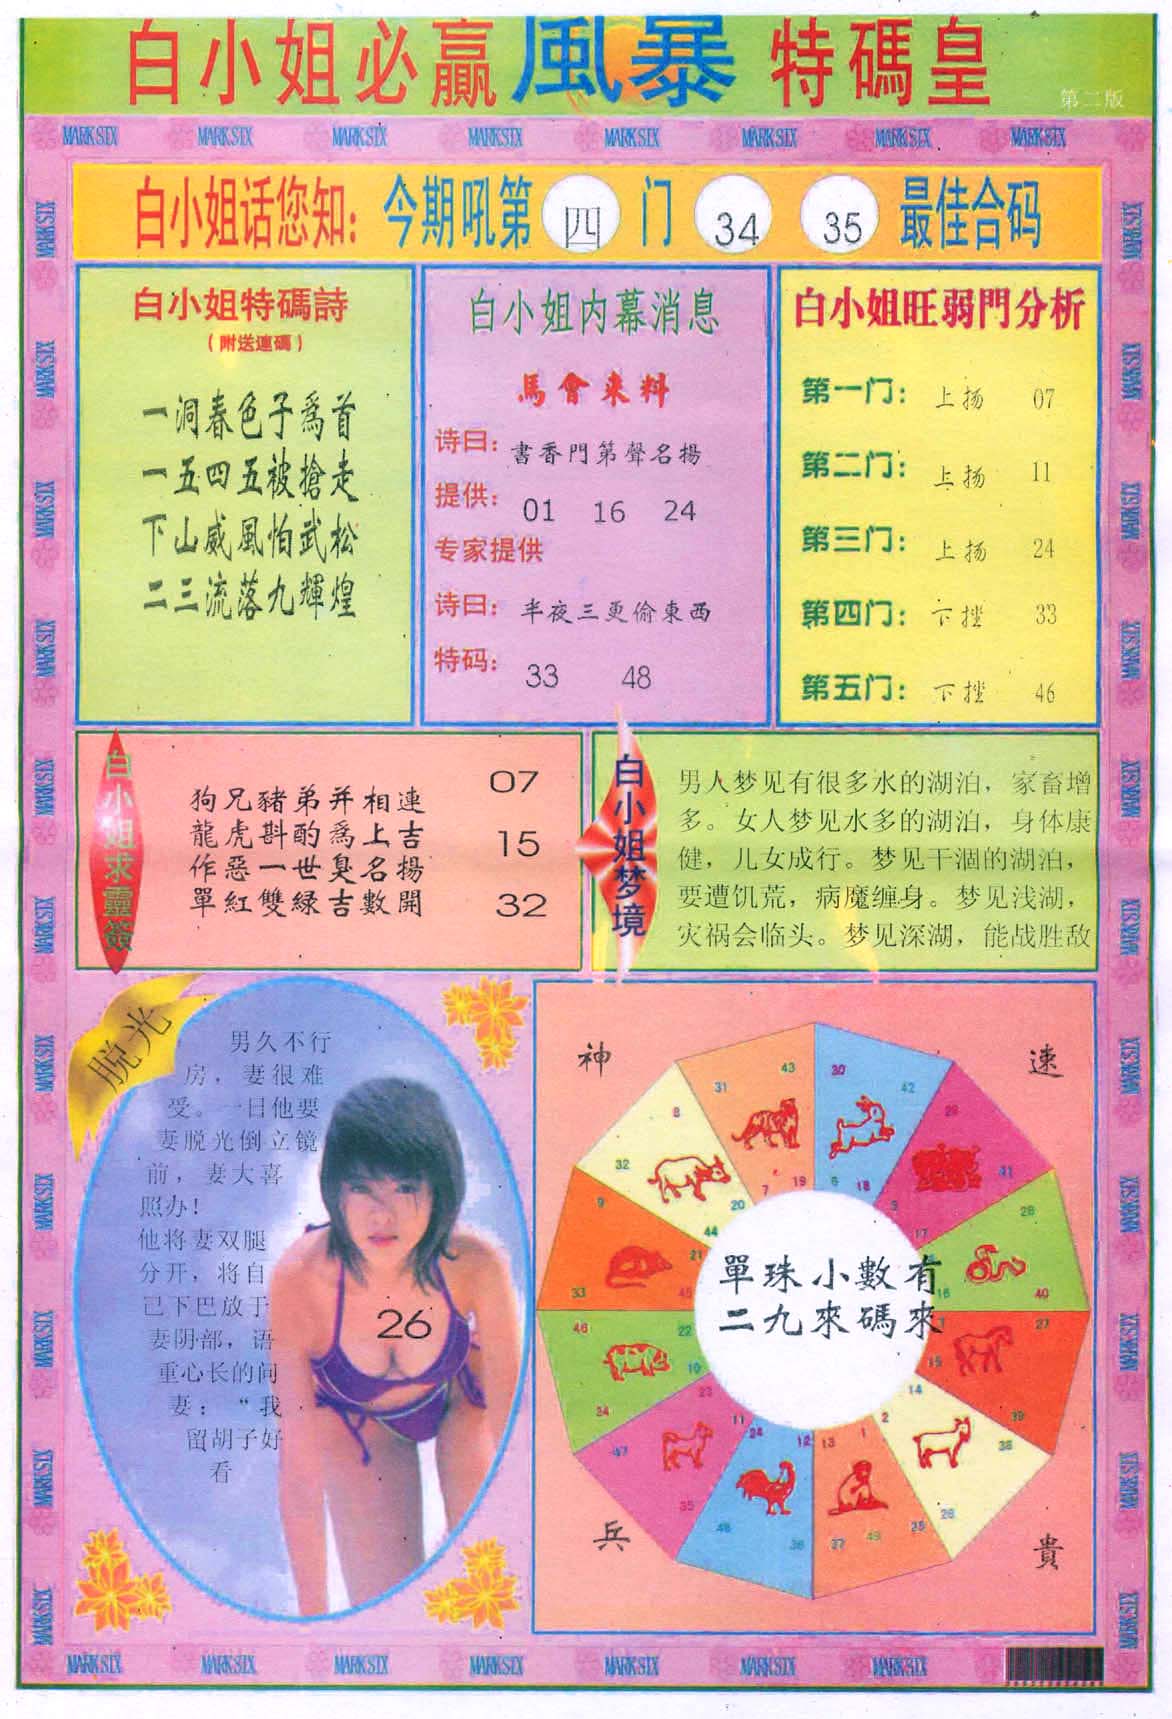 白小姐必贏風暴特碼皇
第二版
MARK SIX MARK SIX MARK SIX MARK SIX MARK SIX MARK SIX MARK SIX MARK SIX
白小姐话您知: 今期吼第 四 门 34 35 最佳合码
白小姐特碼詩
(附送連碼)
一洞春色子爲首
一五四五被搶走
下山威風怕武松
二三流落九輝煌
白小姐内幕消息
馬會来料
诗曰: 書香門第聲名揚
提供: 01 16 24
专家提供
诗曰: 半夜三更偷東西
特码: 33 48
白小姐旺弱門分析
第一门: 上扬 07
第二门: 上扬 11
第三门: 上扬 24
第四门: 下挫 33
第五门: 下挫 46
白小姐求靈簽
狗兄豬弟并相連
龍虎斟酌爲上吉
作惡一世臭名揚
單紅雙緑吉數開
07
15
32
白小姐梦境
男人梦见有很多水的湖泊，家畜增
多。女人梦见水多的湖泊，身体康
健，儿女成行。梦见干涸的湖泊，
要遭饥荒，病魔缠身。梦见浅湖，
灾祸会临头。梦见深湖，能战胜敌
脱光
男久不行
房，妻很难
受。一日他要
妻脱光倒立镜
前，妻大喜
照办！
他将妻双腿
分开，将自
己下巴放于
妻阴部，语
重心长的问
妻：“我
留胡子好
看
26
神
速
兵
貴
43 31 19 7
30 42 6 18
29 41 17
28 40 16
27 39 15
14 2 38 26
1 13 25 37 49
12 24 36 48
11 23 35 47
46 22 10 34
9 21 33 45
8 32 20 44
單珠小數有
二九來碼來
MARK SIX MARK SIX MARK SIX MARK SIX MARK SIX MARK SIX MARK SIX